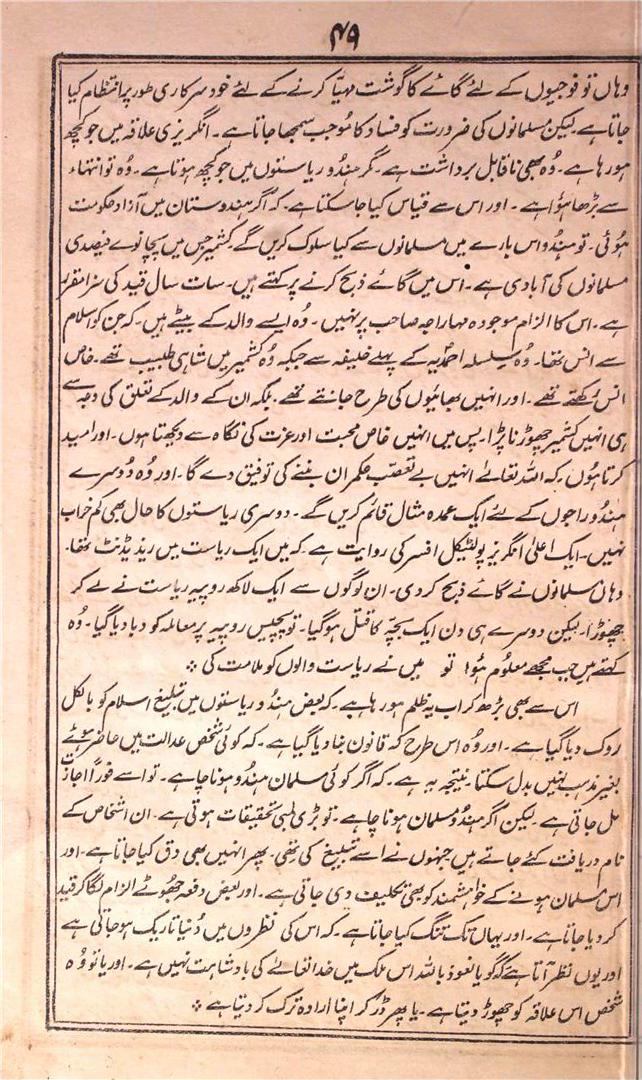 ۴۹
وہاں تو فوجیوں کے لئے گائے کا گوشت مہیا کرنے کے لئے خود سرکاری طور پر انتظام کیا
جاتا ہے۔ لیکن مسلمانوں کی ضرورت کو فساد کا موجب سمجھا جاتا ہے۔ انگریزی علاقہ میں جو کچھ
ہو رہا ہے۔ وُہ بھی ناقابل برداشت ہے۔ مگر ہندو ریاستوں میں جو کچھ ہوتا ہے۔ وُہ تو انتہاء
سے بڑھا ہؤا ہے۔ اور اس سے قیاس کیا جا سکتا ہے۔ کہ اگر ہندوستان میں آزاد حکومت
ہُوئی۔ تو ہندو اس بارے میں مسلمانوں سے کیا سلوک کریں گے۔ کشمیر جس میں پچانوے فیصدی
مسلمانوں کی آبادی ہے۔ اس میں گائے ذبح کرنے پر کہتے ہیں۔ سات سال قید کی سزا مقرر
ہے۔ اس کا الزام موجودہ مہاراجہ صاحب پر نہیں۔ وُہ ایسے والد کے بیٹے ہیں۔ کہ جن کو اسلام
سے انس تھا۔ وُہ سلسلہ احمدیہ کے پہلے خلیفہ سے جبکہ وُہ کشمیر میں شاہی طبیب تھے۔ خاص
انس رکھتے تھے۔ اور انہیں بھائیوں کی طرح جانتے تھے۔ بلکہ ان کے والد کے تعلق کی وجہ سے
ہی انہیں کشمیر چھوڑنا پڑا۔ پس میں انہیں خاص محبت اور عزت کی نگاہ سے دیکھتا ہوں۔ اور امید
کرتا ہُوں۔ کہ اللہ تعالےٰ انہیں بے تعصب حکمران بننے کی توفیق دے گا۔ اور وُہ دُوسرے
ہندو راجوں کے لئے ایک عمدہ مثال قائم کریں گے۔ دوسری ریاستوں کا حال بھی کم خراب
نہیں۔ ایک اعلیٰ انگریز پولٹیکل افسر کی روایت ہے۔ کہ میں ایک ریاست میں ریذیڈنٹ تھا۔
وہاں مسلمانوں نے گائے ذبح کر دی۔ ان لوگوں سے ایک لاکھ روپیہ ریاست نے لے کر
چھوڑا۔ لیکن دوسرے ہی دن ایک بچّہ کا قتل ہوگیا۔ تو پچیس روپیہ پر معاملہ کو دبا دیا گیا۔ وُہ
کہتے ہیں جب مجھے معلُوم ہؤا تو میں نے ریاست والوں کو ملامت کی ٭
اس سے بھی بڑھ کر اب یہ ظلم ہو رہا ہے۔ کہ بعض ہندو ریاستوں میں تبلیغ اسلام کو بالکل
روک دیا گیا ہے۔ اور وُہ اس طرح کہ قانون بنا دیا گیا ہے۔ کہ کوئی شخص عدالت میں حاضر ہوئے
بغیر مذہب نہیں بدل سکتا۔ نتیجہ یہ ہے۔ کہ اگر کوئی مسلمان ہندو ہونا چاہے۔ تو اسے فوراً اجازت
مل جاتی ہے۔ لیکن اگر ہندو مسلمان ہونا چاہے۔ تو بڑی لمبی تحقیقات ہوتی ہے۔ ان اشخاص کے
نام دریافت کئے جاتے ہیں جنہوں نے اسے تبلیغ کی تھی۔ پھر انہیں بھی دق کیا جاتا ہے۔ اور
اس مسلمان ہونے کے خواہشمند کو بھی تکلیف دی جاتی ہے۔ اور بعض دفعہ جھُوٹے الزام لگا کر قید
کر دیا جاتا ہے۔ اور یہاں تک تنگ کیا جاتا ہے۔ کہ اس کی نظروں میں دُنیا تاریک ہو جاتی ہے
اور یوں نظر آتا ہے کہ گویا نعوذ باللہ اس ملک میں خدا تعالےٰ کی بادشاہت نہیں ہے۔ اور یا تو وُہ
شخص اس علاقہ کو چھوڑ دیتا ہے۔ یا پھر ڈر کر اپنا ارادہ ترک کر دیتا ہے ٭